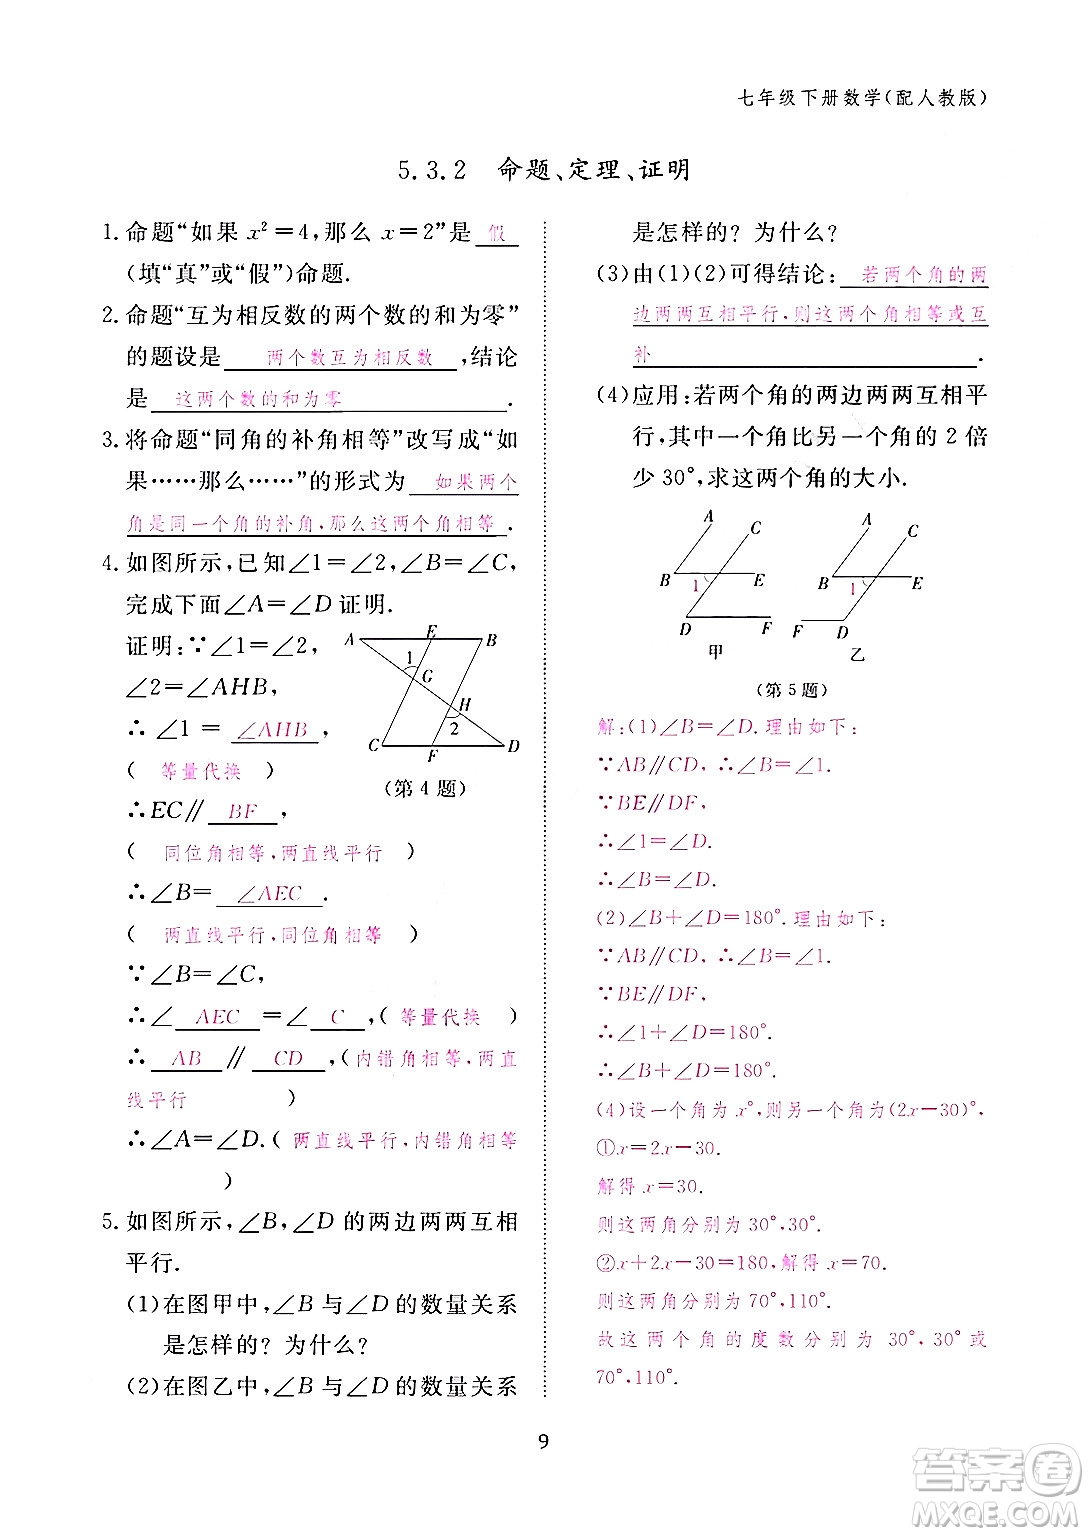 七年级下册数学(配人教版)
5.3.2 命题、定理、证明
1. 命题“如果 x²=4,那么 x=2”是 假
(填“真”或“假”)命题.
2. 命题“互为相反数的两个数的和为零”
的题设是 两个数互为相反数 ,结论
是 这两个数的和为零 .
3. 将命题“同角的补角相等”改写成“如
果……那么……”的形式为 如果两个
角是同一个角的补角,那么这两个角相等 .
4. 如图所示,已知∠1=∠2,∠B=∠C,
完成下面∠A=∠D 证明.
证明:∵∠1=∠2,
∠2=∠AHB,
∴∠1= ∠AHB
( 等量代换 )
∴EC∥ BF ,
( 同位角相等,两直线平行 )
∴∠B= ∠AEC .
( 两直线平行,同位角相等 )
∵∠B=∠C,
∴∠ AEC =∠ C ,( 等量代换 )
∴ AB ∥ CD ,( 内错角相等,两直
线平行 )
∴∠A=∠D.( 两直线平行,内错角相等
)
A E B
1
G
H
2
C F D
(第 4 题)
5. 如图所示,∠B,∠D 的两边两两互相
平行.
(1)在图甲中,∠B 与∠D 的数量关系
是怎样的? 为什么?
(2)在图乙中,∠B 与∠D 的数量关系
是怎样的? 为什么?
(3)由(1)(2)可得结论: 若两个角的两
边两两互相平行,则这两个角相等或互
补 .
(4)应用:若两个角的两边两两互相平
行,其中一个角比另一个角的 2 倍
少 30°,求这两个角的大小.
A C
B 1 E
D F
甲
A C
B 1 E
F D
乙
(第 5 题)
解:(1)∠B=∠D.理由如下:
∵AB∥CD,∴∠B=∠1.
∵BE∥DF,
∴∠1=∠D.
∴∠B=∠D.
(2)∠B+∠D=180°.理由如下:
∵AB∥CD,∴∠B=∠1.
∵BE∥DF,
∴∠1+∠D=180°.
∴∠B+∠D=180°.
(4)设一个角为 x°,则另一个角为(2x-30)°,
①x=2x-30.
解得 x=30.
则这两角分别为 30°,30°.
②x+2x-30=180,解得 x=70.
则这两角分别为 70°,110°.
故这两个角的度数分别为 30°,30°或
70°,110°.
9
答案卷
MXQE.COM